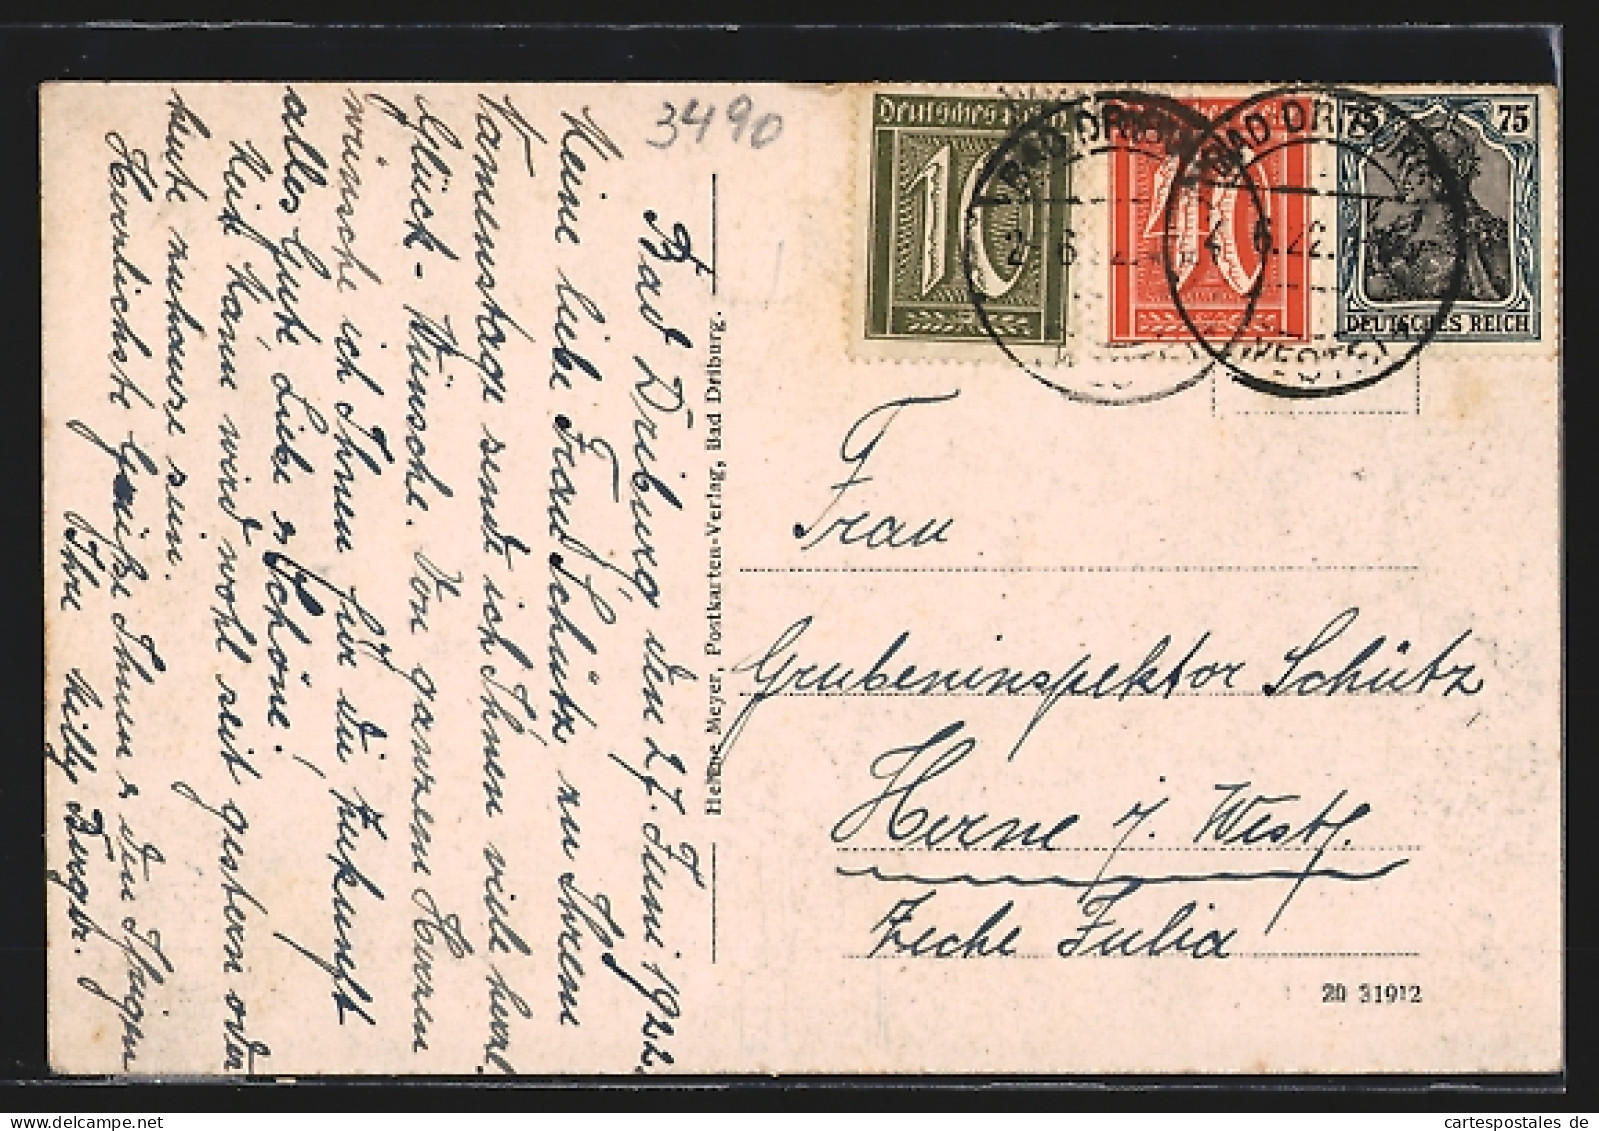 3490
Bad Driburg den 27. Juni 1922.
Meine liebe Frau Schütz zu Ihrem
Namenstage sende ich Ihnen viele herzl.
Glück-Wünsche. Von ganzem Herzen
wünsche ich Ihnen für die Zukunft
alles Gute Liebe & Schöne!
Mein Mann wird wohl seit gestern oder
heute zuhause sein.
Herzlichste Grüße Ihnen & den Ihrigen
Ihre Milly Berger.
Helene Meyer, Postkarten-Verlag, Bad Driburg.
Deutsches Reich
10
40
75 75
DEUTSCHES REICH
BAD DRIBURG
BAD DRIBURG
6.22.
(WESTF)
Frau
Grubeninspektor Schütz
Herne i. Westf.
Zeche Julia
20 31912
cartespostales.de